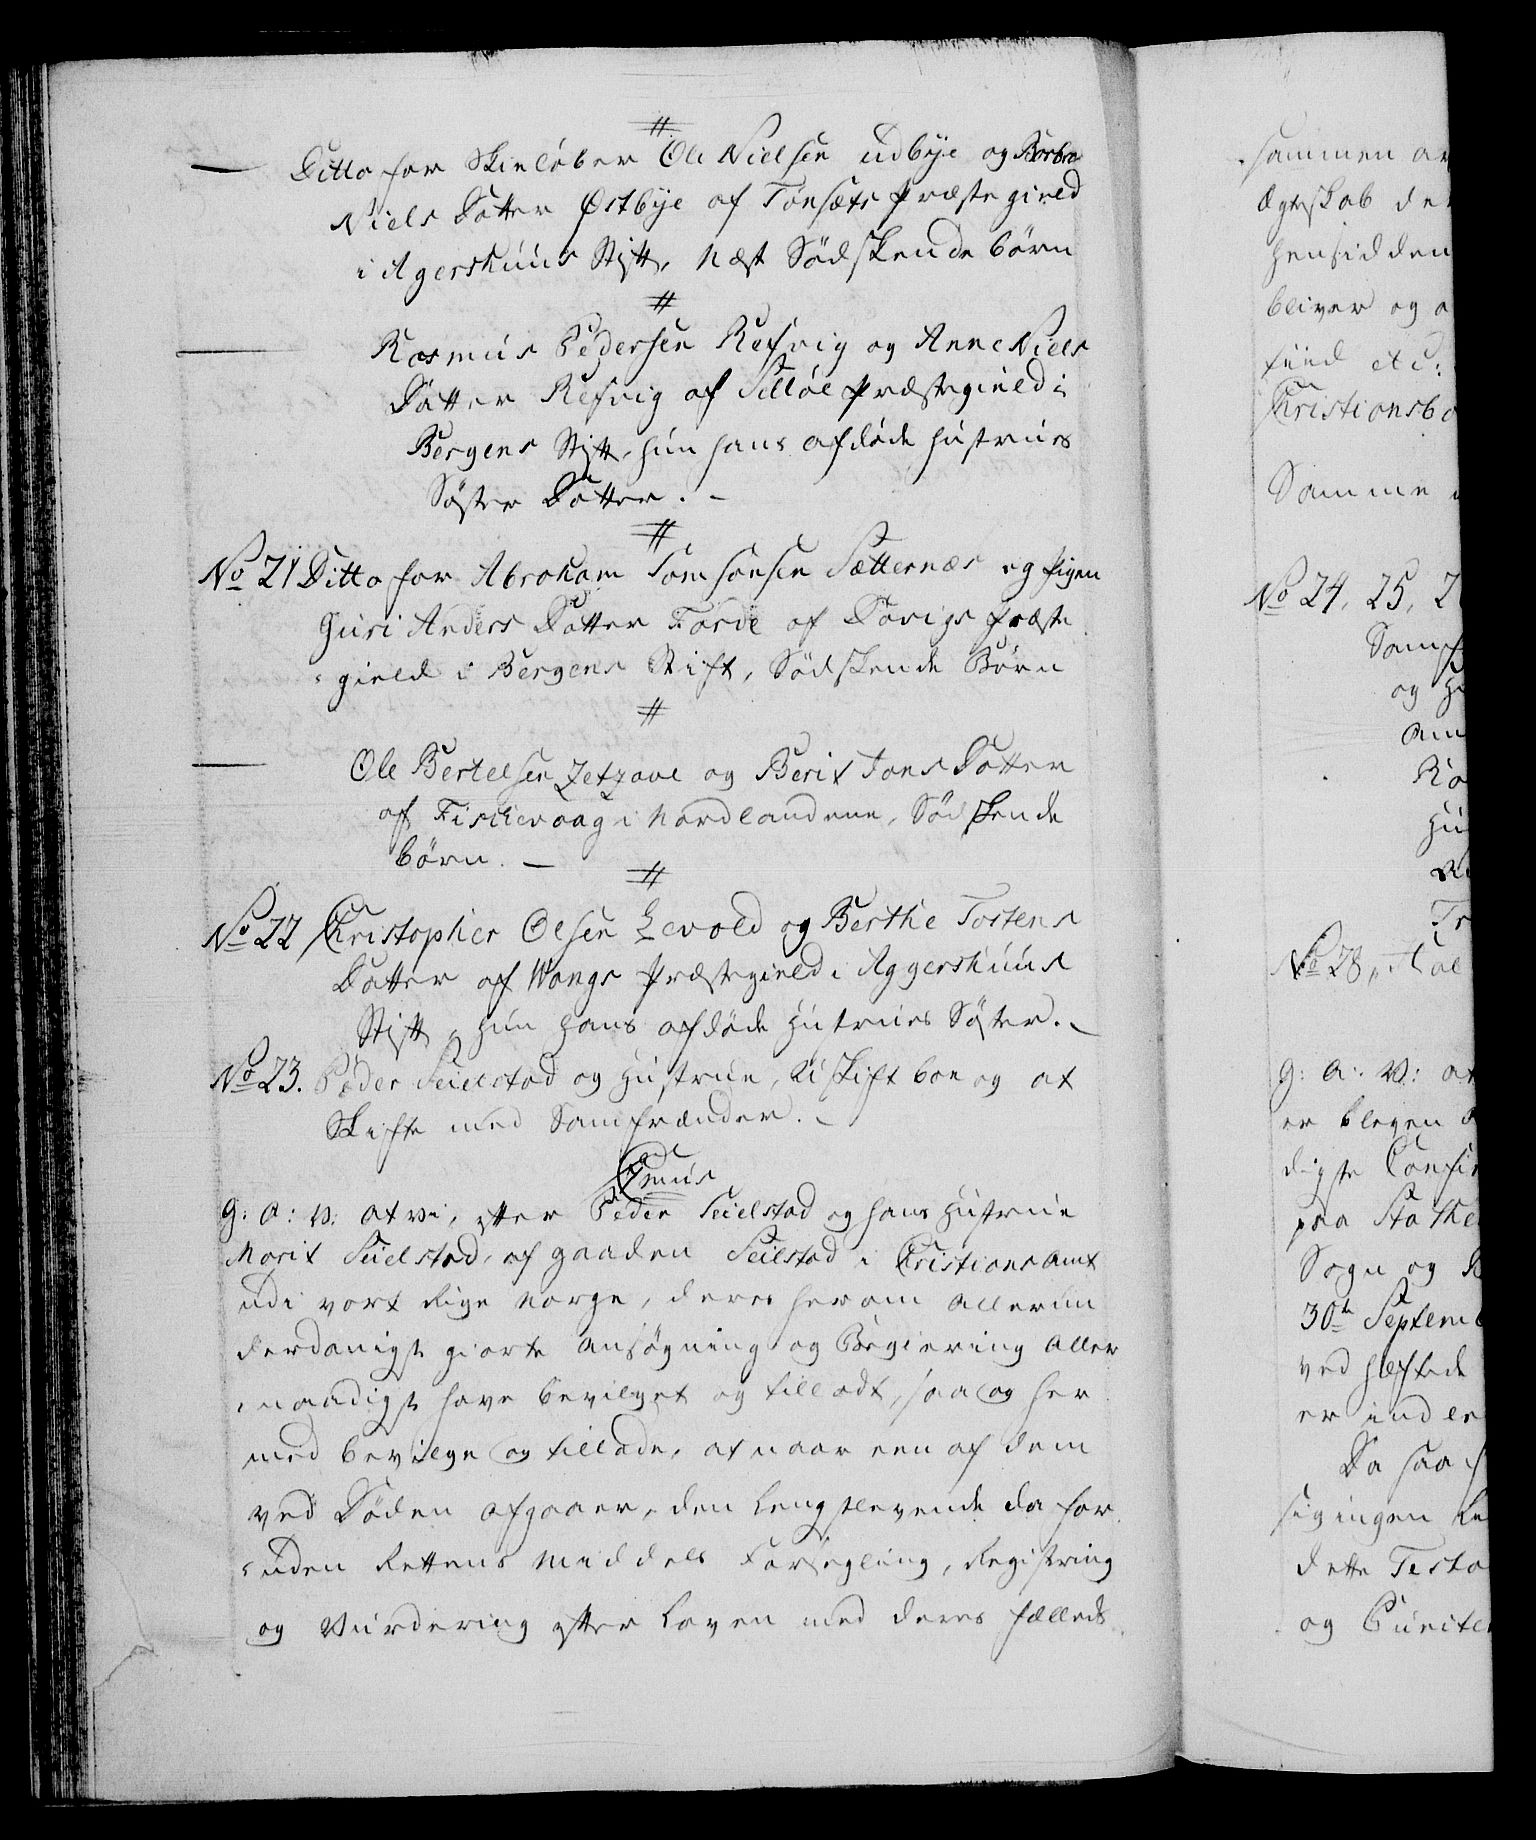 #
Ditto for Skieløber Ole Nielsen Udbye og Barbra
Niels Datter Østbye af Tønsæts Præstegield
i Agershuus Stift, Næst Södskende börn
#
Rasmus Pedersen Refvig og Anne Niels
Datter Refvig af Selløe Præstegield i
Bergens Stift, hun hans afdöde Hustrues
Söster Datter. -
#
No 21 Ditto for Abraham Samsonsen Sætternæs og Pigen
Guri Anders Datter Förde af Davigs Præste
gield i Bergens Stift, Södskende Börn
#
Ole Bertelsen og Berit Jons Datter
af Fischevaag i Nordlandene, Södskende
börn. -
#
No 22 Christopher Olsen Levold og Berthe Tostens
Datter af Wangs Præstegield i Aggershuus
Stift, hun hans afdöde Hustrues Söster. -
No 23. Peder Seielstad og Hustrue, Uskift boe og at
Skifte med Samfrænder. -
G: A: V: at vi, efter Peder Seielstad og hans Hustrue
Marit Seielstad, af gaarden Seilstad i Christians Amt
udi vort Rige Norge, deres herom allerun
derdanigst giorte Ansøgning og Begiering Aller
naadigst have bevilget og tilladt, saa og her
med bevilge og tillade, at naar een af dem
ved Döden afgaaer, den Lengstlevende da for
uden Rettens Middels Forsegling, Registring
og Vurdering efter Loven med deres fælleds
sammen a
Ægteskab de
hensidden
bliver og o
fiid etc:
Christiansbo
Samme
No 24, 25, 2
Samf
og H
Am
Ra
Hu
Tr
No 28,
G: A: V: at
er bleven
digste Confir
paa Sta the
Sogn og
30te Septemb
ved hæftede
er indle
Da saa
sig ingen Li
dette Testa
og